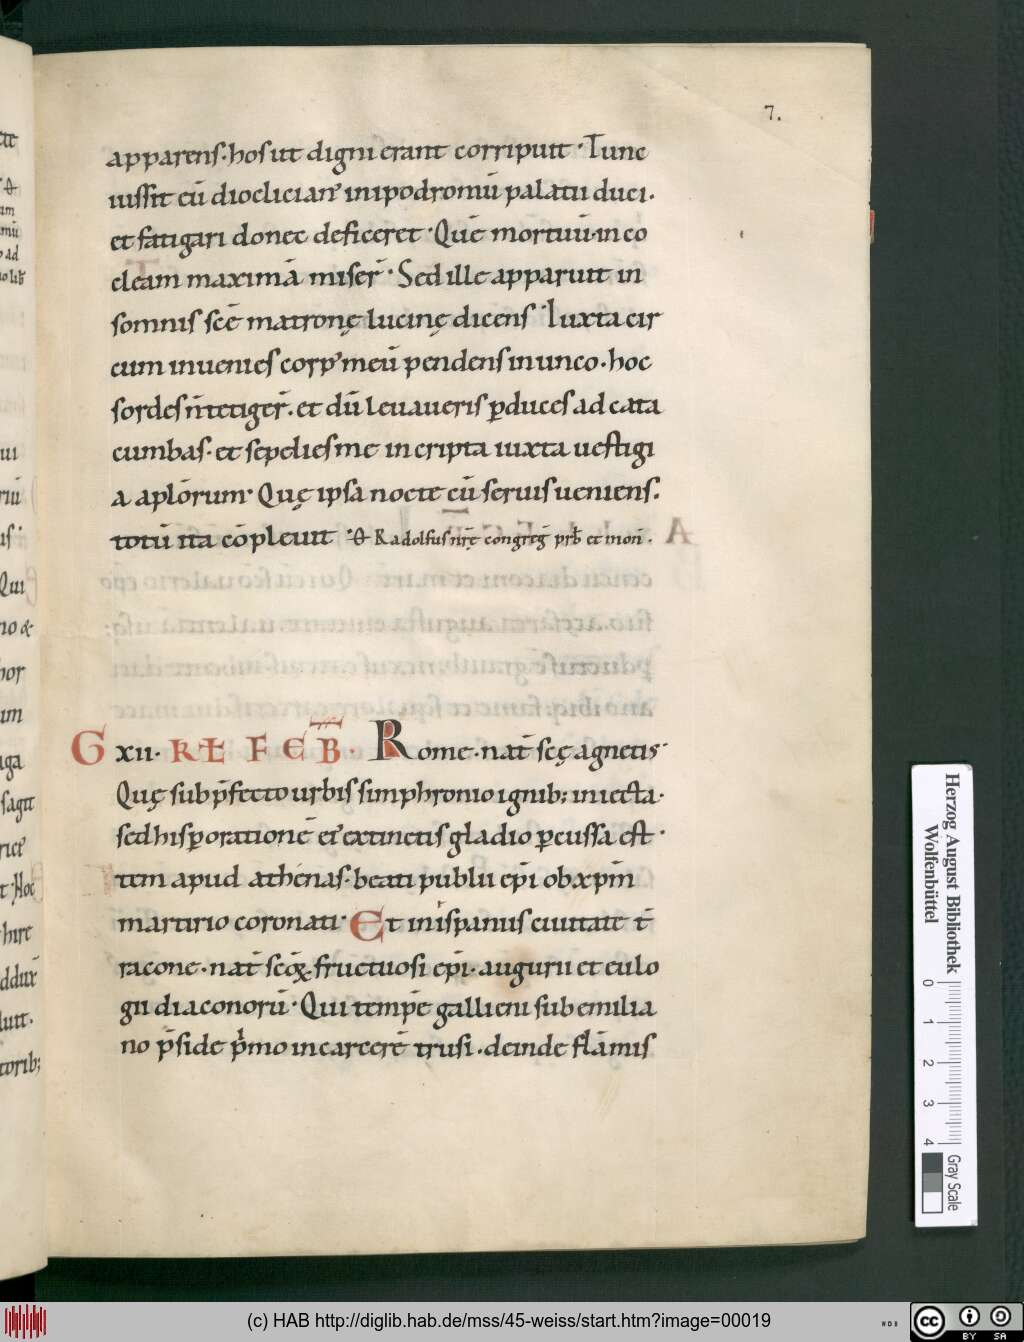 7.
apparens. hos ut digni erant corriput͛. Tunc
iussit cū dioclician᷒ in ipodromū palatii duci.
et fatigari donec deficeret. Quē mortuū. in co
cleam maximā miser̄. Sed ille apparuit in
somnis scē matronę lucinę dicens. Iuxta cir
cum inuenies corp᷒ meū pendens in unco. hoc
sordes n̄ tetiger̄. et dū leuaueris ꝑduces ad cata
cumbas. et sepelies me in cripta iuxta uestigi
a apl̄orum. Quę ipsa nocte cū seruis ueniens.
totū ita cōpleuit. Radolfus nr̄ę congreg̅ prb̅ et mon̅.
G xii. KL FEB̄. Rome. nat̄ scę agnetis.
Quę sub p̄fecto urbis simphronio ignib; iniecta.
sed his ꝑ orationē ei᷒ extinctis gladio ꝑcussa est.
Item apud athenas. beati publii ep̄i ob xp̄m
martirio coronati. Et in ispaniis ciuitate t̄
racone. nat̄ scōꝝ fructuosi ep̄i. augurii et eulo
gii diaconorū. Qui tempe̅ gallieni sub emilia
no p̄side p̍mo in carcerē trusi. deinde flāmis
Herzog August Bibliothek
Wolfenbüttel
0 1 2 3 4
Gray Scale
(c) HAB http://diglib.hab.de/mss/45-weiss/start.htm?image=00019
WDB
cc BY SA